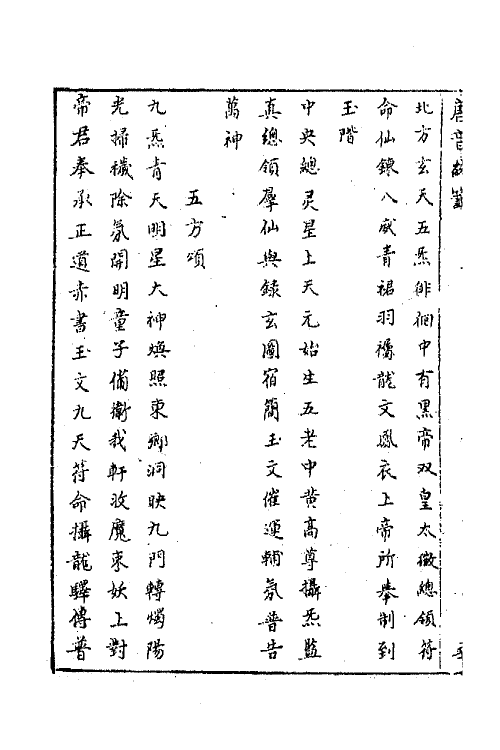 唐音統籤
北方玄天五炁徘徊中有黑帝双皇太微總領符
命仙錬八威青裙羽襡龍文鳳衣上帝所舉制到
玉階
中央總灵星上天元始生五老中黄高尊攝炁監
真總領羣仙典録玄圖宿簡玉文催運輔氛普告
萬神
五方頌
九炁青天明星大神煥照東鄉洞映九門轉燭陽
光掃穢除氛開明童子俻衛我軒收魔束妖上對
帝君奉承正道赤書玉文九天符命攝龍驛傳普